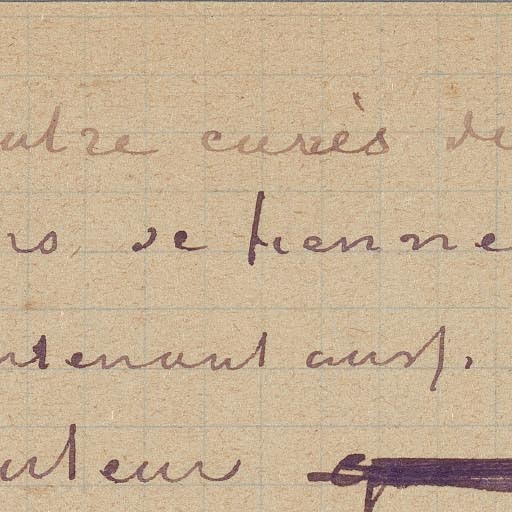 utre curès de
ns, se tienne
ntenant auss.
uteur